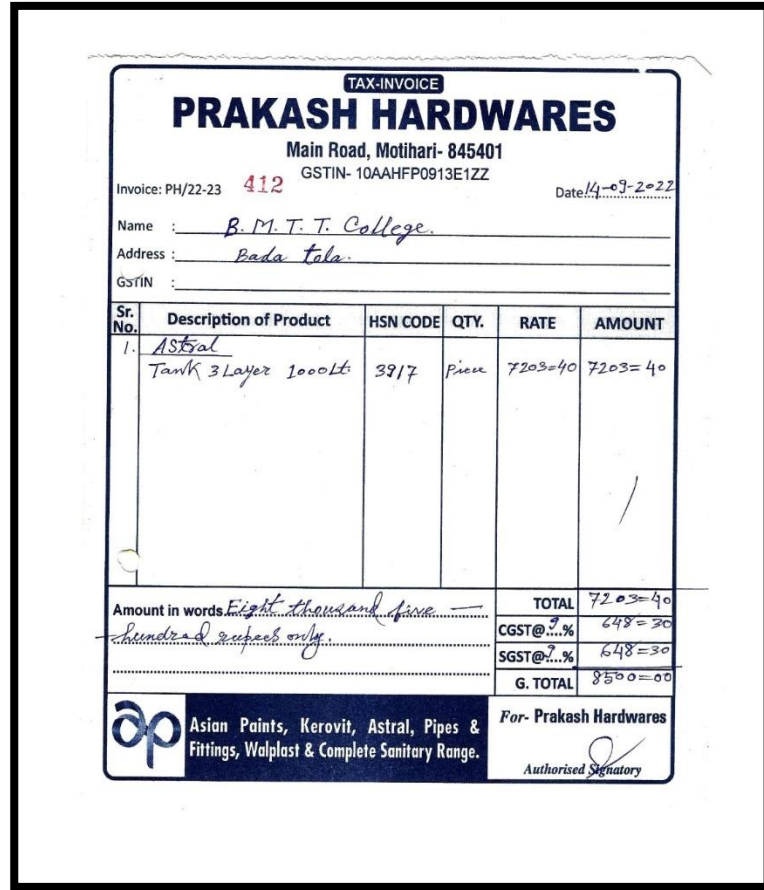 TAX-INVOICE
PRAKASH HARDWARES
Main Road, Motihari- 845401
GSTIN- 10AAHFP0913E1ZZ
Invoice: PH/22-23 412 Date 14-09-2022
Name : B. M. T. T. College.
Address : Bada tola.
GSTIN :
Sr. No. Description of Product HSN CODE QTY. RATE AMOUNT
1. Astral
Tank 3 Layer 1000Lt. 3917 Piece 7203=40 7203=40
TOTAL 7203=40
Amount in words Eight thousand five —
hundred rupees only.
CGST@9% 648=30
SGST@9% 648=30
G. TOTAL 8500=00
ap
Asian Paints, Kerovit, Astral, Pipes &
Fittings, Walplast & Complete Sanitary Range.
For- Prakash Hardwares
Authorised Signatory